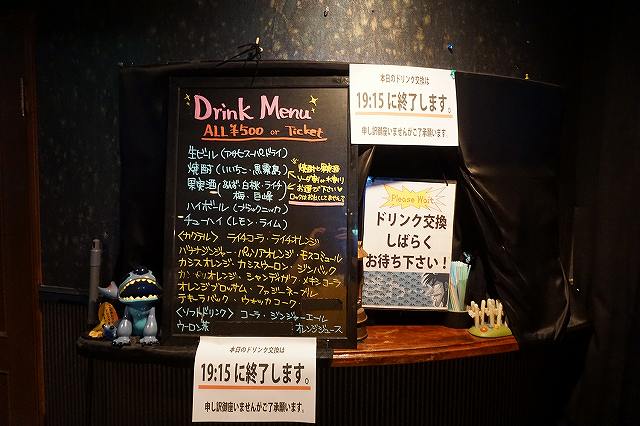 Drink Menu
ALL ¥500 or Ticket
生ビール(アサヒスーパードライ)
焼酎(いいちこ・黒霧島)
果実酒(みかん・白桃・ライチ
梅・巨峰)
焼酎と果実酒
ソーダ割りor水割り
お選び下さい
ロックはお出ししてません
ハイボール(ブラックニッカ)
チューハイ(レモン・ライム)
<カクテル> ライチコーラ・ライチオレンジ
バナナジンジャー・パッソアオレンジ・モスコミュール
カシスオレンジ・カシスウーロン・ジンバック
カンパリオレンジ・シャンディガフ・メキシコーラ
オレンジブロッサム・ファジーネーブル
テキーラバック・ウォッカコーク
<ソフトドリンク> コーラ・ジンジャーエール
ウーロン茶 オレンジジュース
本日のドリンク交換は
19:15に終了します。
申し訳御座いませんがご了承願います。
Please Wait
ドリンク交換
しばらく
お待ち下さい!
本日のドリンク交換は
19:15に終了します。
申し訳御座いませんがご了承願います。